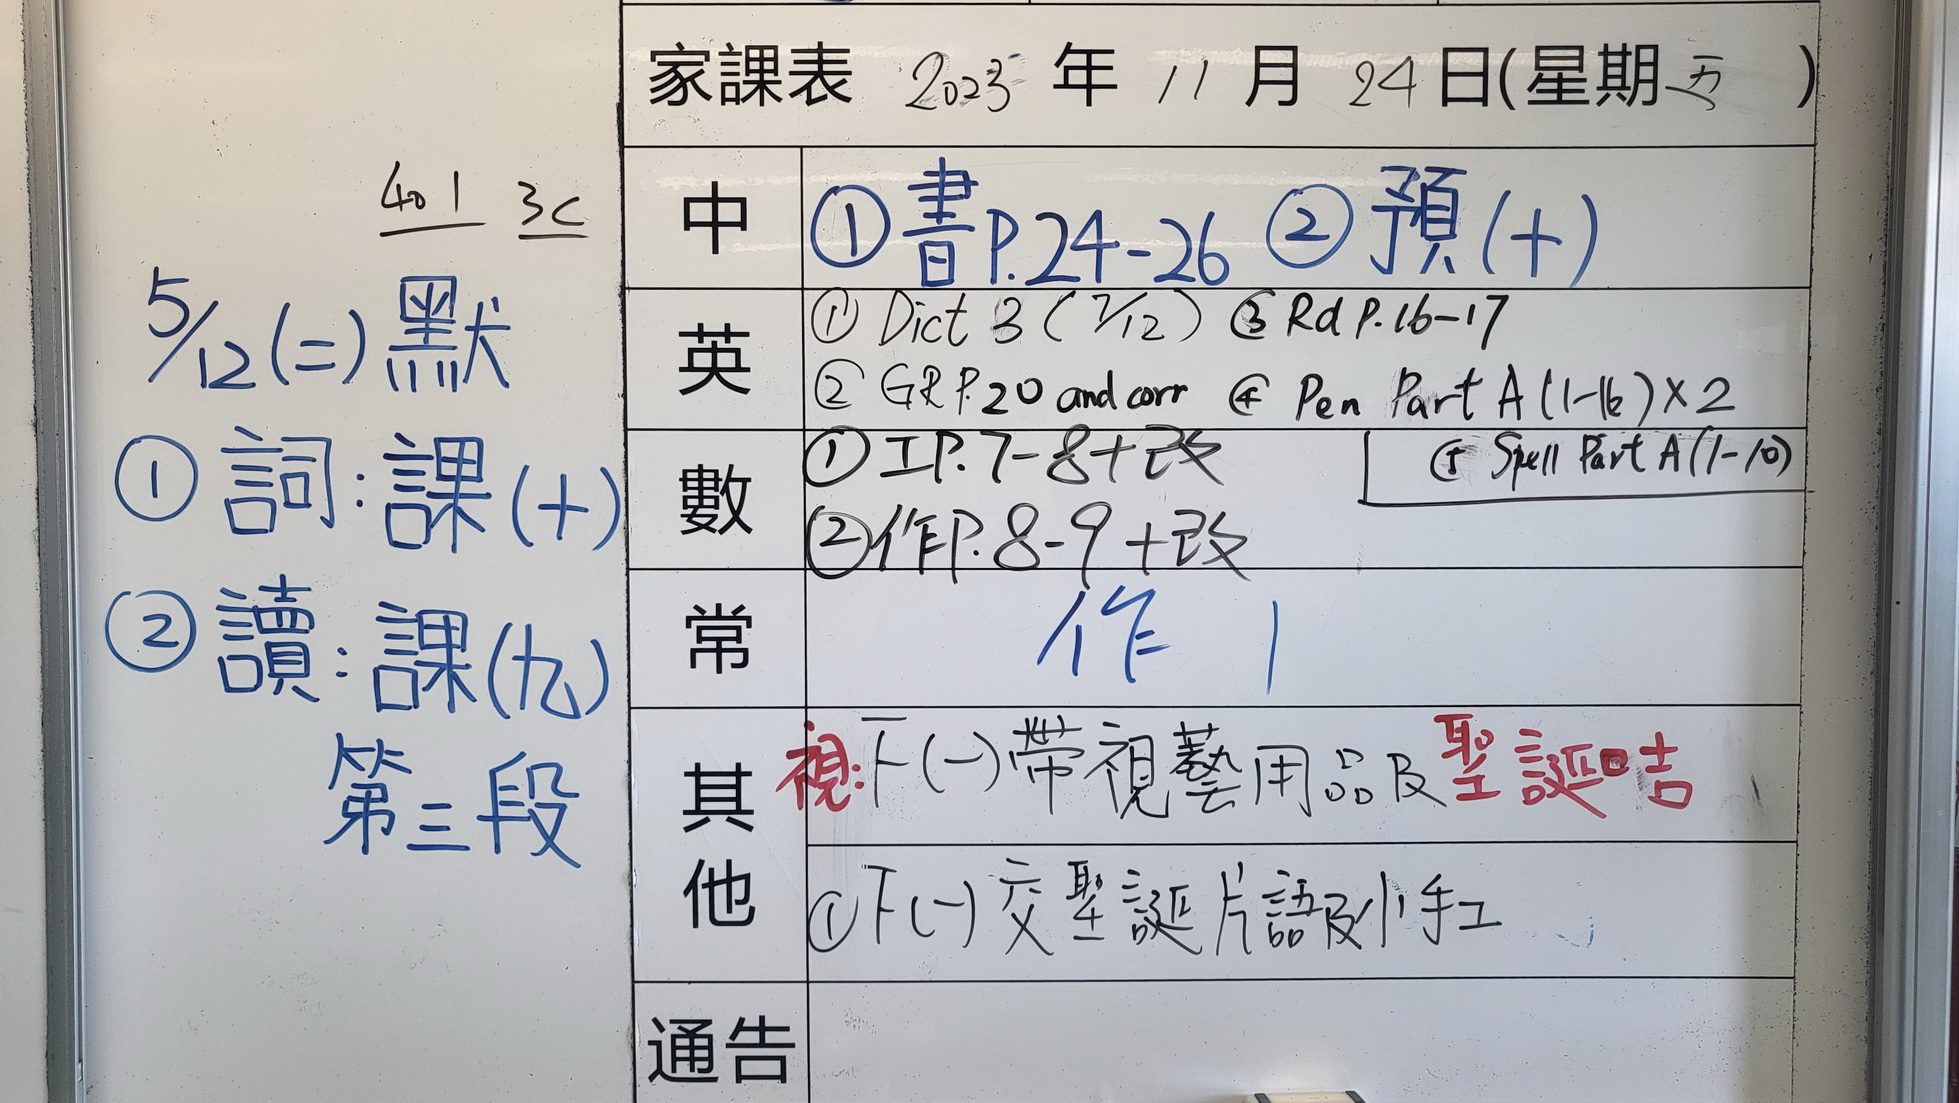 家課表 2023年 11月 24日(星期五)
401 3C
5/12(二)默
① 詞:課(十)
② 讀:課(九)
第三段
中 ①書P.24-26 ②預(十)
英 ① Dict 3 (7/12) ③ Rd P.16-17
② GR P.20 and corr ④ Pen Part A (1-16) x 2
⑤ Spell Part A (1-10)
數 ① 工P.7-8+改
② 作P.8-9+改
常 作 1
其他 視:下(一)帶視藝用品及聖誕咭
①下(一)交聖誕片語及小手工
通告